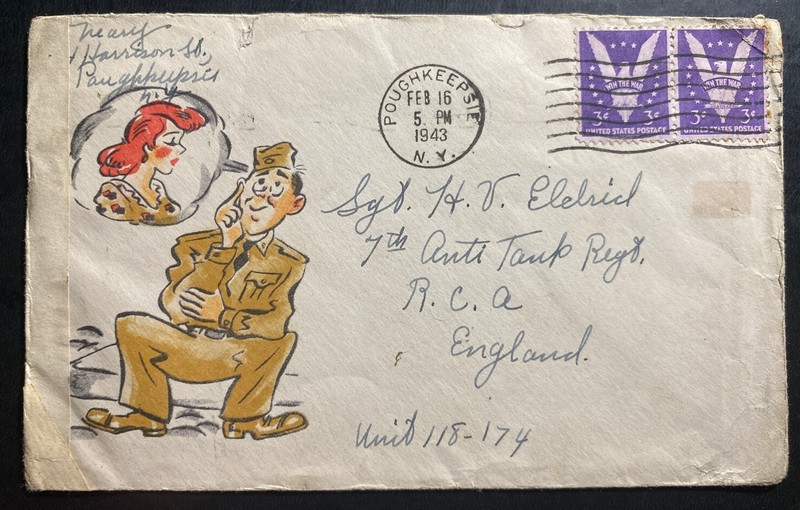 Neary
Harrison St,
Poughkeepsie
N.Y.
POUGHKEEPSIE
FEB 16
5 PM
1943
N.Y.
WIN THE WAR
3¢ 3¢
UNITED STATES POSTAGE
WIN THE WAR
3¢ 3¢
UNITED STATES POSTAGE
Sgt. H. V. Eldrid
7th Anti Tank Regt.
R. C. A
England.
Unit 118-174